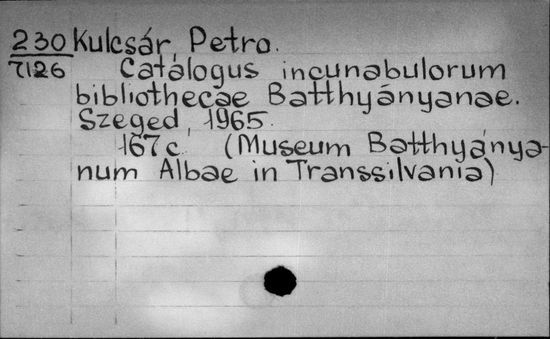 230 Kulcsár, Petro.
7126 Catalogus incunabulorum
bibliothecae Batthyányanae.
Szeged, 1965.
167 c. (Museum Batthyánya-
num Albae in Transsilvania)